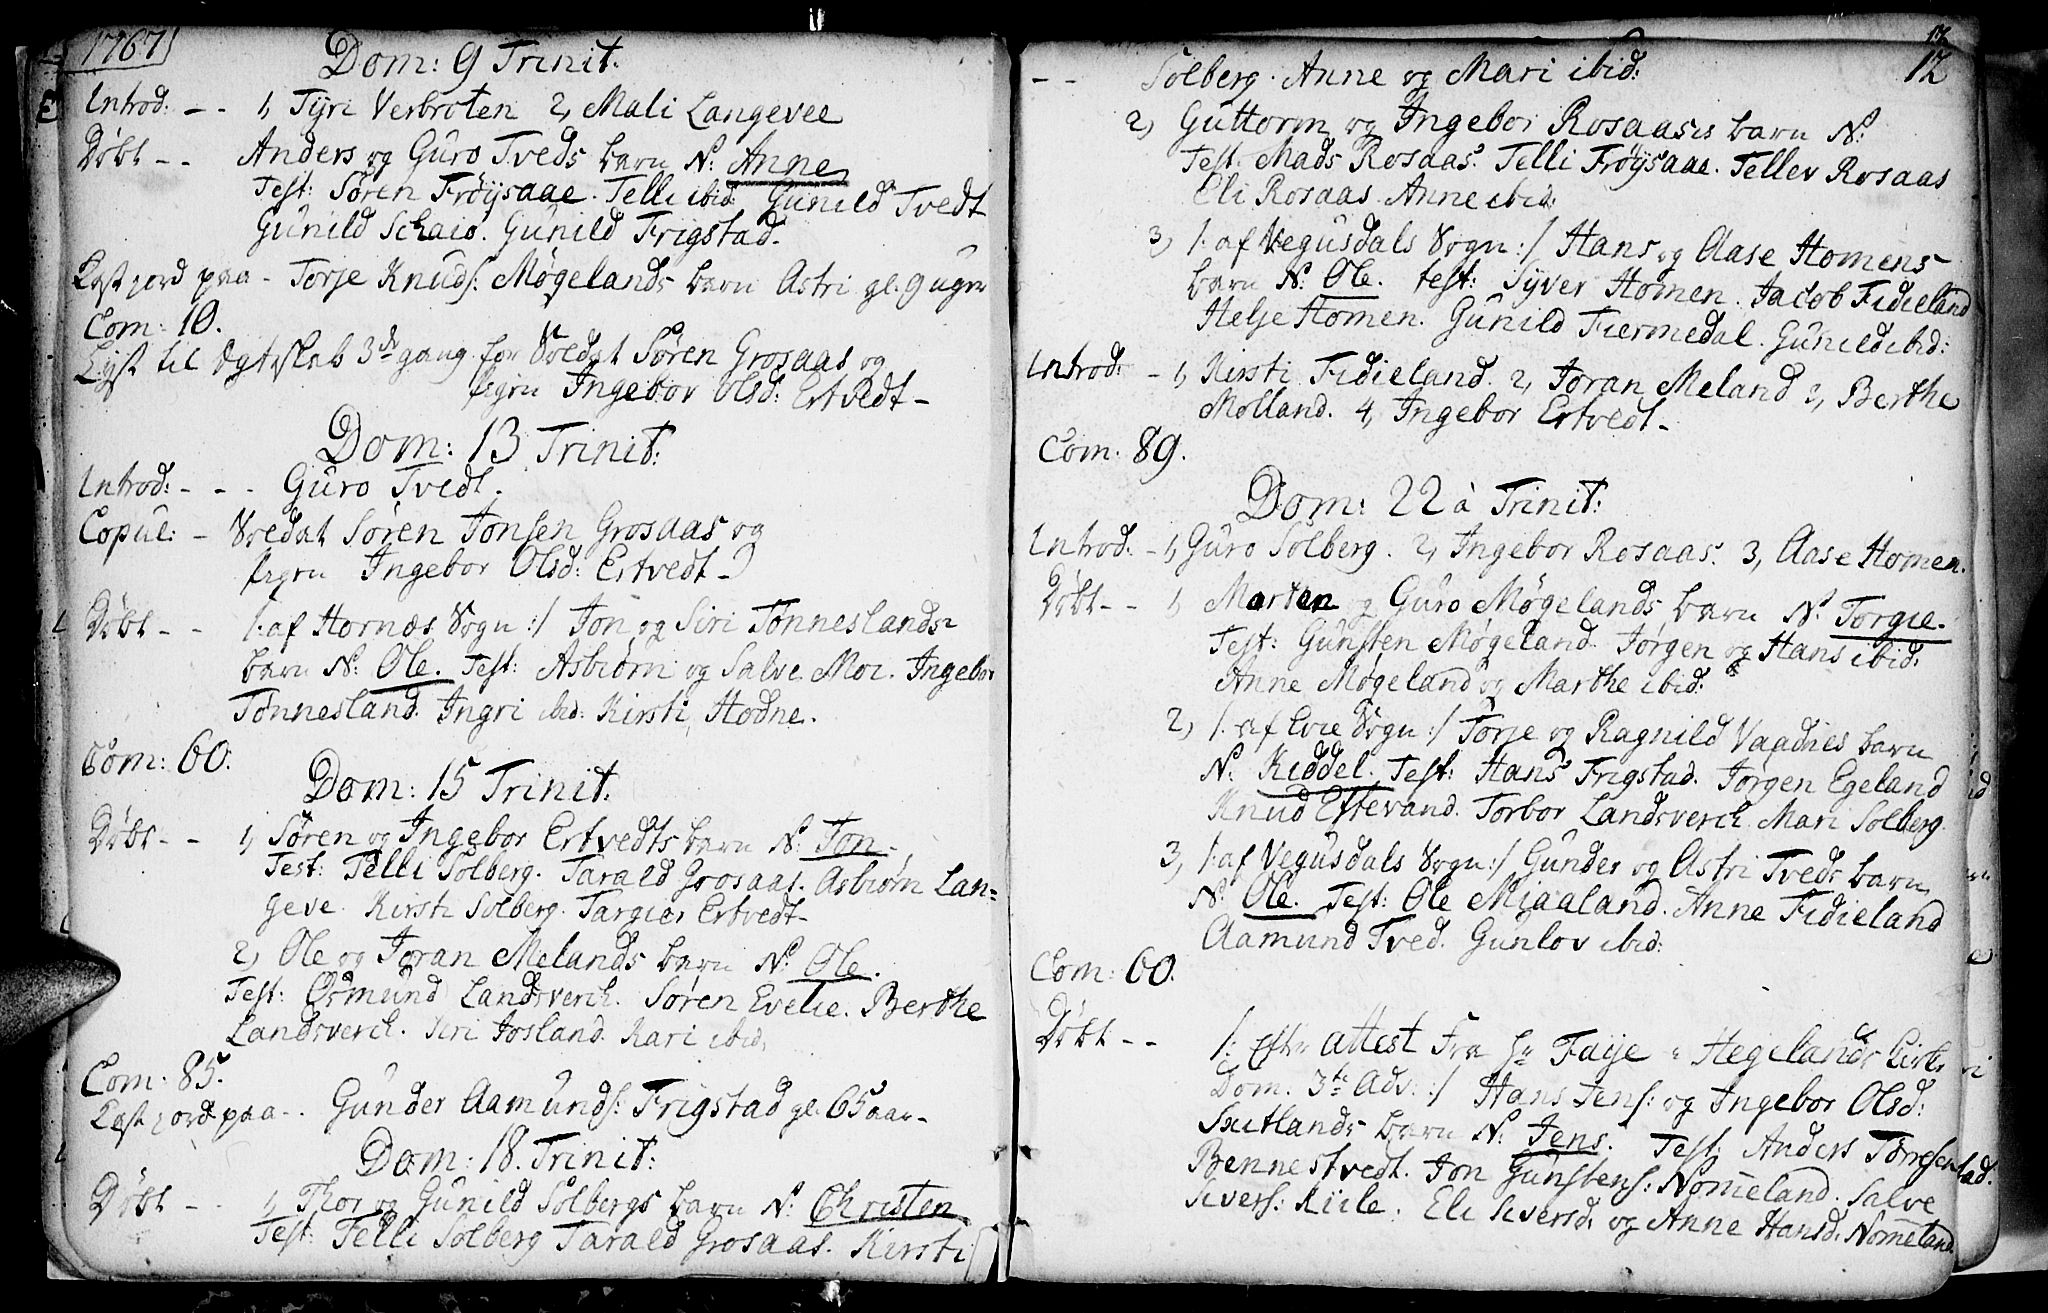 1767
Dom: 9 Trinit:
Introd: - - 1, Tÿri Verbroten 2, Mali Langevee
Døbt - - Anders og Guro Tveds barn N: Anne
Test: Søren Frøÿsaae. Telli ibid: Gunild Tvedt
Gunild Schaio. Gunild Frigstad.
Kast jord paa - Torje Knuds: Møgelands barn Astri gl. 9 uger
Com: 10.
Lyst til Ægteskab 3de gang for Soldat Søren Grosaas og
pigen Ingebor Olsd: Ertvedt -
Dom: 13 Trinit:
Introd: - - - Guro Tvedt.
Copul: - Soldat Søren Jonsen Grosaas og
pigen Ingebor Olsd: Ertvedt -
Døbt - - /: af Hornæs Sogn :/ Jon og Siri Tønneslands
barn N: Ole. Test: Asbiørn og Salve Moi. Ingebor
Tønnesland. Ingri ibid: Kirsti Hodne.
Com: 60.
Dom: 15 Trinit:
Døbt - - 1, Søren og Ingebor Ertvedts barn N: Jon -
Test: Telli Solberg. Tarald Grosaas. Asbiørn Lan=
geve. Kirsti Solberg. Targier Ertvedt-
2, Ole og Joran Melands barn N: Ole.
Test: Osmund Landsverch. Søren Evelie. Berthe
Landsverch. Siri Josland. Kari ibid.
Com: 85.
Kast jord paa - . Gunder Aamunds: Frigstad gl. 65 aar -
Dom: 18. Trinit:
Døbt - - 1, Thor og Gunild Solbergs barn N: Christen
Test: Telli Solberg Tarald Grosaas. Kirsti
12
12
- - Solberg. Anne og Mari ibid:
2, Guttorm og Ingebor Rosaases barn N:
Test. Mads Rosaas. Telli Frøÿsaae. Tellev Rosaas
Eli Rosaas. Anne ibid:
3, /: af Vegusdals Sogn :/ Hans og Aase Homens
barn N: Ole. test: Syver Homen. Jacob Fidieland
Helje Homen. Gunild Fiermedal. Gunild ibid:
Introd: - 1, Kirsti Fidieland. 2, Joran Meland 3, Berthe
Molland. 4, Ingebor Ertvedt -
Com: 89.
Dom: 22 à Trinit:
Introd: - 1, Guro Solberg. 2, Ingebor Rosaas. 3, Aase Homen.
Døbt - - 1, Marten og Guro Møgelands barn N: Torgie.
Test: Gunsten Møgeland. Jørgen og Hans ibid.
Anne Møgeland og Marthe ibid:
2, /: af Evie Sogn :/ Torje og Ragnild Vaadnes barn
N: Kiddel. Test: Hans Frigstad. Jørgen Egeland
Knud Eftevand. Torbor Landsverch Mari Solberg.
3, /: af Vegusdals Sogn :/ Gunder og Astri Tveds barn
N: Ole. Test: Ole Miaaland. Anne Fidieland
Aamund Tved. Gunlov ibid:
Com: 60.
Døbt - - /: Efter attest fra Hr Faÿe i Hegelands Kirke
Dom. 3te Adv: :/ Hans Jens: og Ingebor Olsd:
barn N: Jens. Test: Anders Torresen
Bennestvedt. Jon Gunstens: Nomeland. Salve
Sivers: Kiile. Eli Siversd: og Anne Hansd. Nomeland